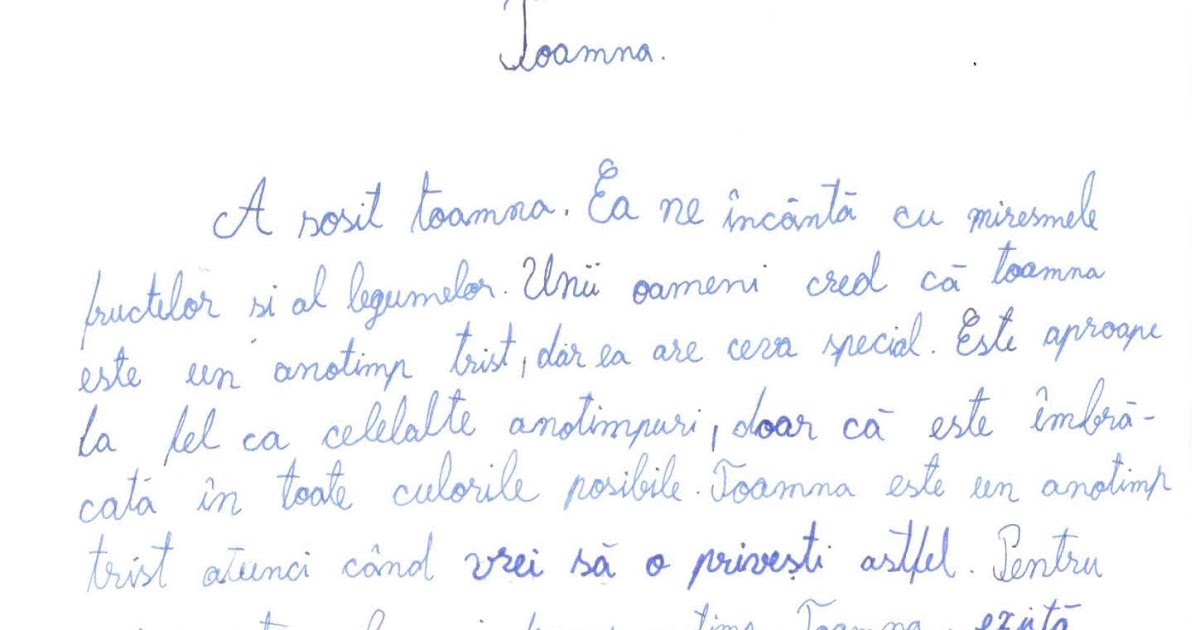 Toamna.
A sosit toamna. Ea ne încântă cu miresmele
fructelor si al legumelor. Unii oameni cred că toamna
este un anotimp trist, dar ea are ceva special. Este aproape
la fel ca celelalte anotimpuri, doar că este îmbră-
cată în toate culorile posibile. Toamna este un anotimp
trist atunci când vrei să o privești astfel. Pentru
Toamna